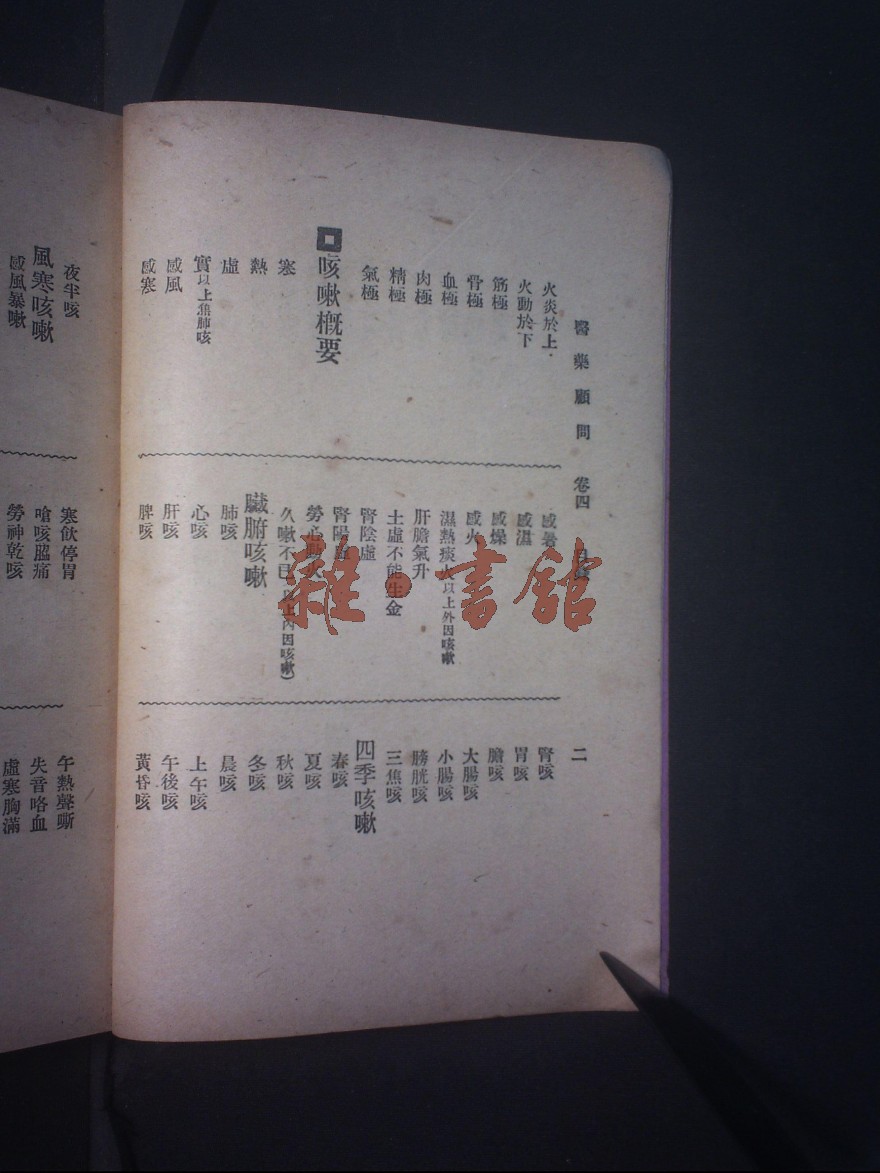 醫藥顧問 卷四 目錄 二
火炎於上
火動於下
筋極
骨極
血極
肉極
精極
氣極
咳嗽概要
寒
熱
虛
實以上焦肺咳
感風
感寒
感暑
感濕
感燥
感火
濕熱痰火以上外因咳嗽
肝膽氣升
土虛不能生金
腎陰虛
腎陽虛
勞心動火
久嗽不已(以上內因咳嗽)
臟腑咳嗽
肺咳
心咳
肝咳
脾咳
腎咳
胃咳
膽咳
大腸咳
小腸咳
膀胱咳
三焦咳
四季咳嗽
春咳
夏咳
秋咳
冬咳
晨咳
上午咳
午後咳
黃昏咳
夜半咳
風寒咳嗽
感風暴嗽
寒飲停胃
嗆咳脇痛
勞神乾咳
午熱聲嘶
失音咯血
虛寒胸滿
雜·書館